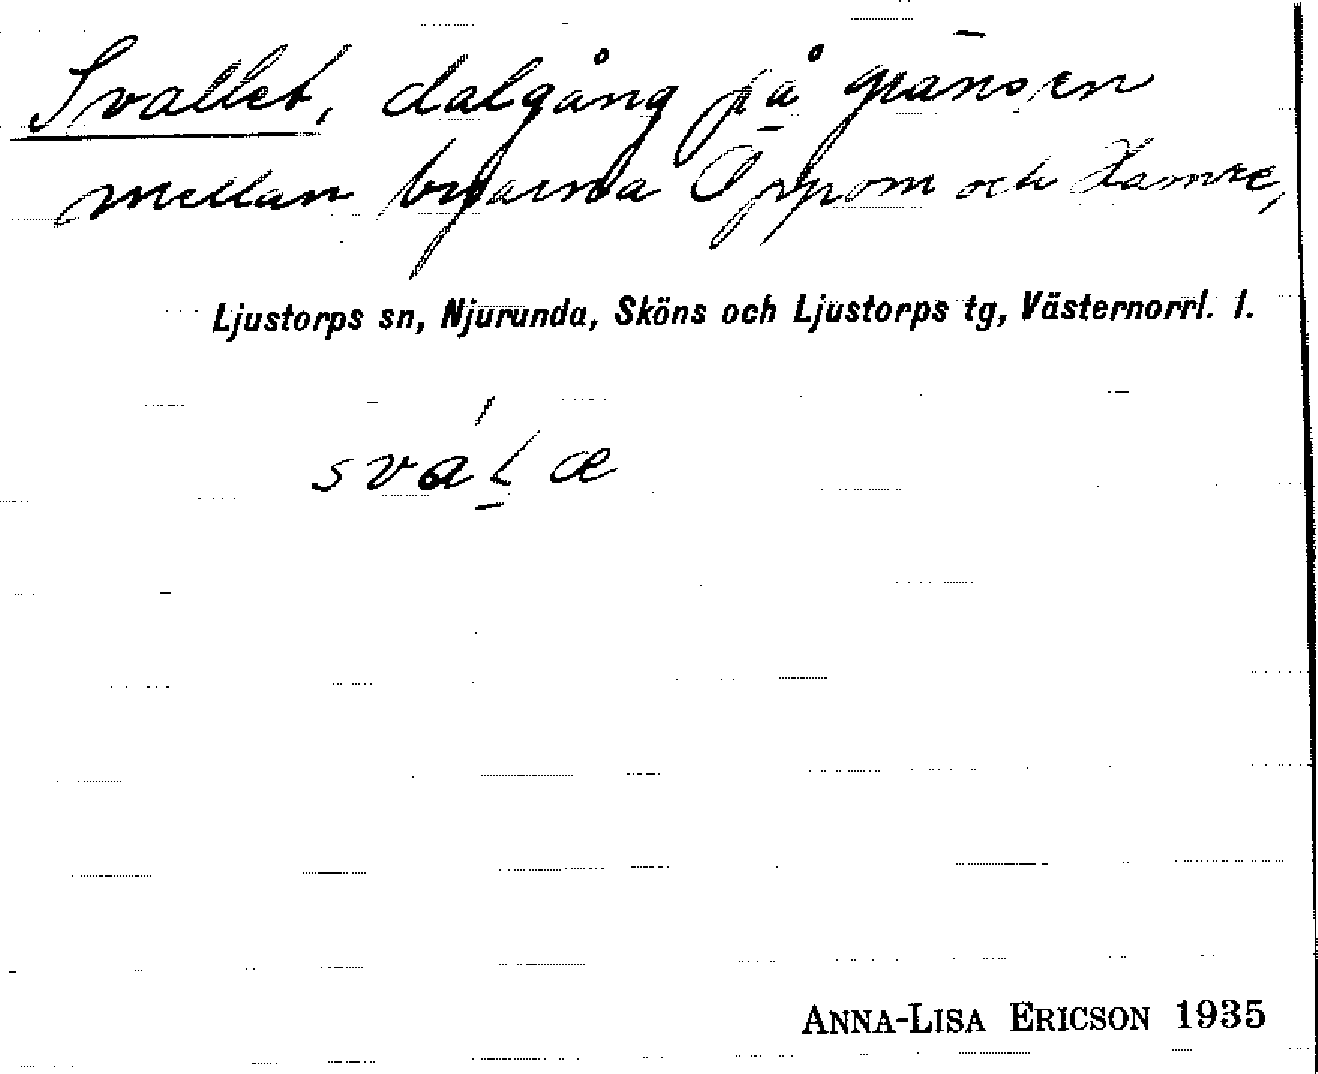 Svallet, dalgång på gränsen
mellan byarna Öppom och Hamre,
Ljustorps sn, Njurunda, Sköns och Ljustorps tg, Västernorrl. l.
ANNA-LISA ERICSON 1935